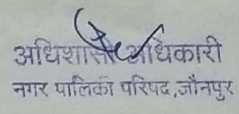 अधिशासी अधिकारी
नगर पालिका परिषद,जौनपुर